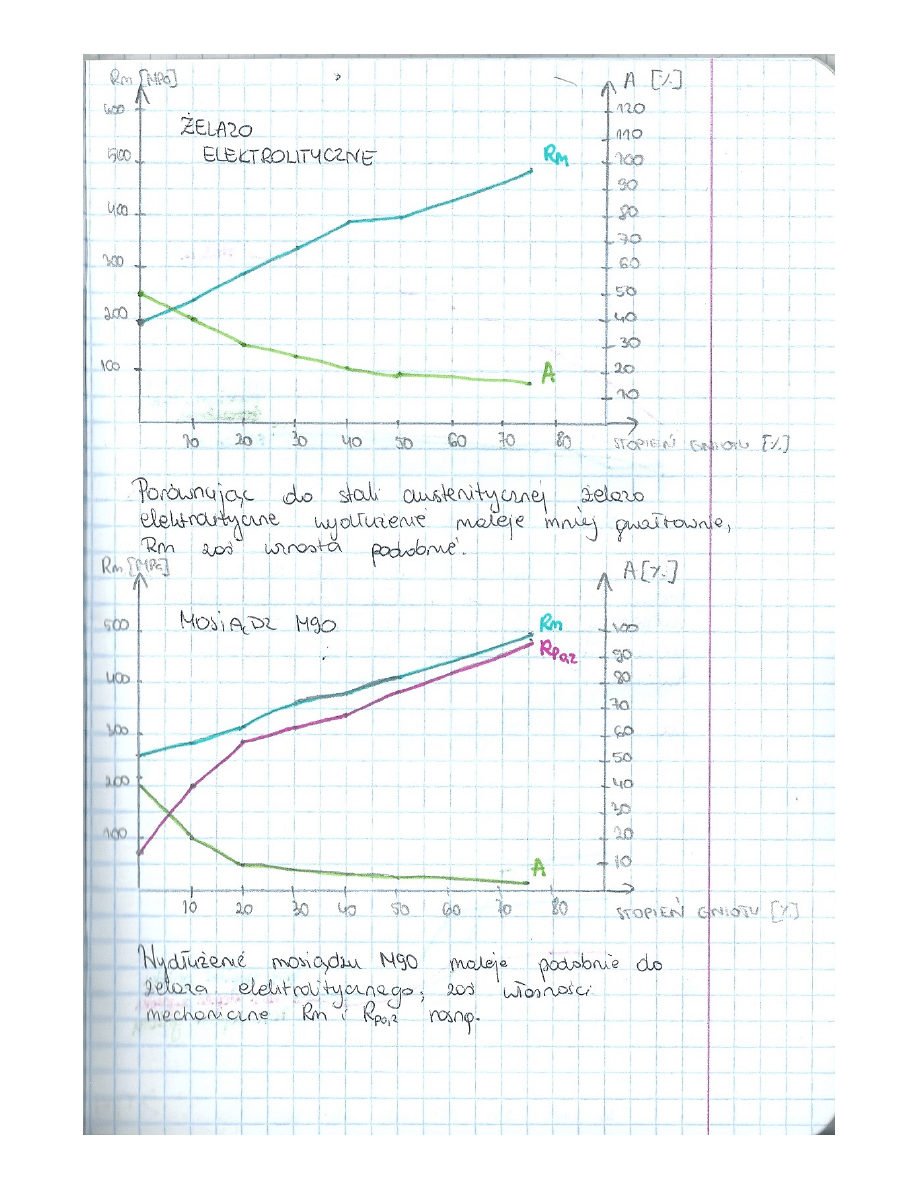 Rm [MPa]
A [%]
600
120
ŻELAZO
110
ELEKTROLITYCZNE
500
Rm
100
90
400
80
70
300
60
50
200
40
30
100
20
A
10
10 20 30 40 50 60 70 80 STOPIEŃ GNIOTU [%]
Porównując do stali austenitycznej żelazo
elektrolityczne wydłużenie maleje mniej gwałtownie,
Rm zaś wzrasta podobnie.
Rm [MPa]
A [%]
500
MOSIĄDZ M90
Rm
100
Rp0,2
90
400
80
70
300
60
50
200
40
30
100
20
A
10
10 20 30 40 50 60 70 80 STOPIEŃ GNIOTU [%]
Wydłużenie mosiądzu M90 maleje podobnie do
żelaza elektrolitycznego, zaś własności
mechaniczne Rm i Rp0,2 rosną.